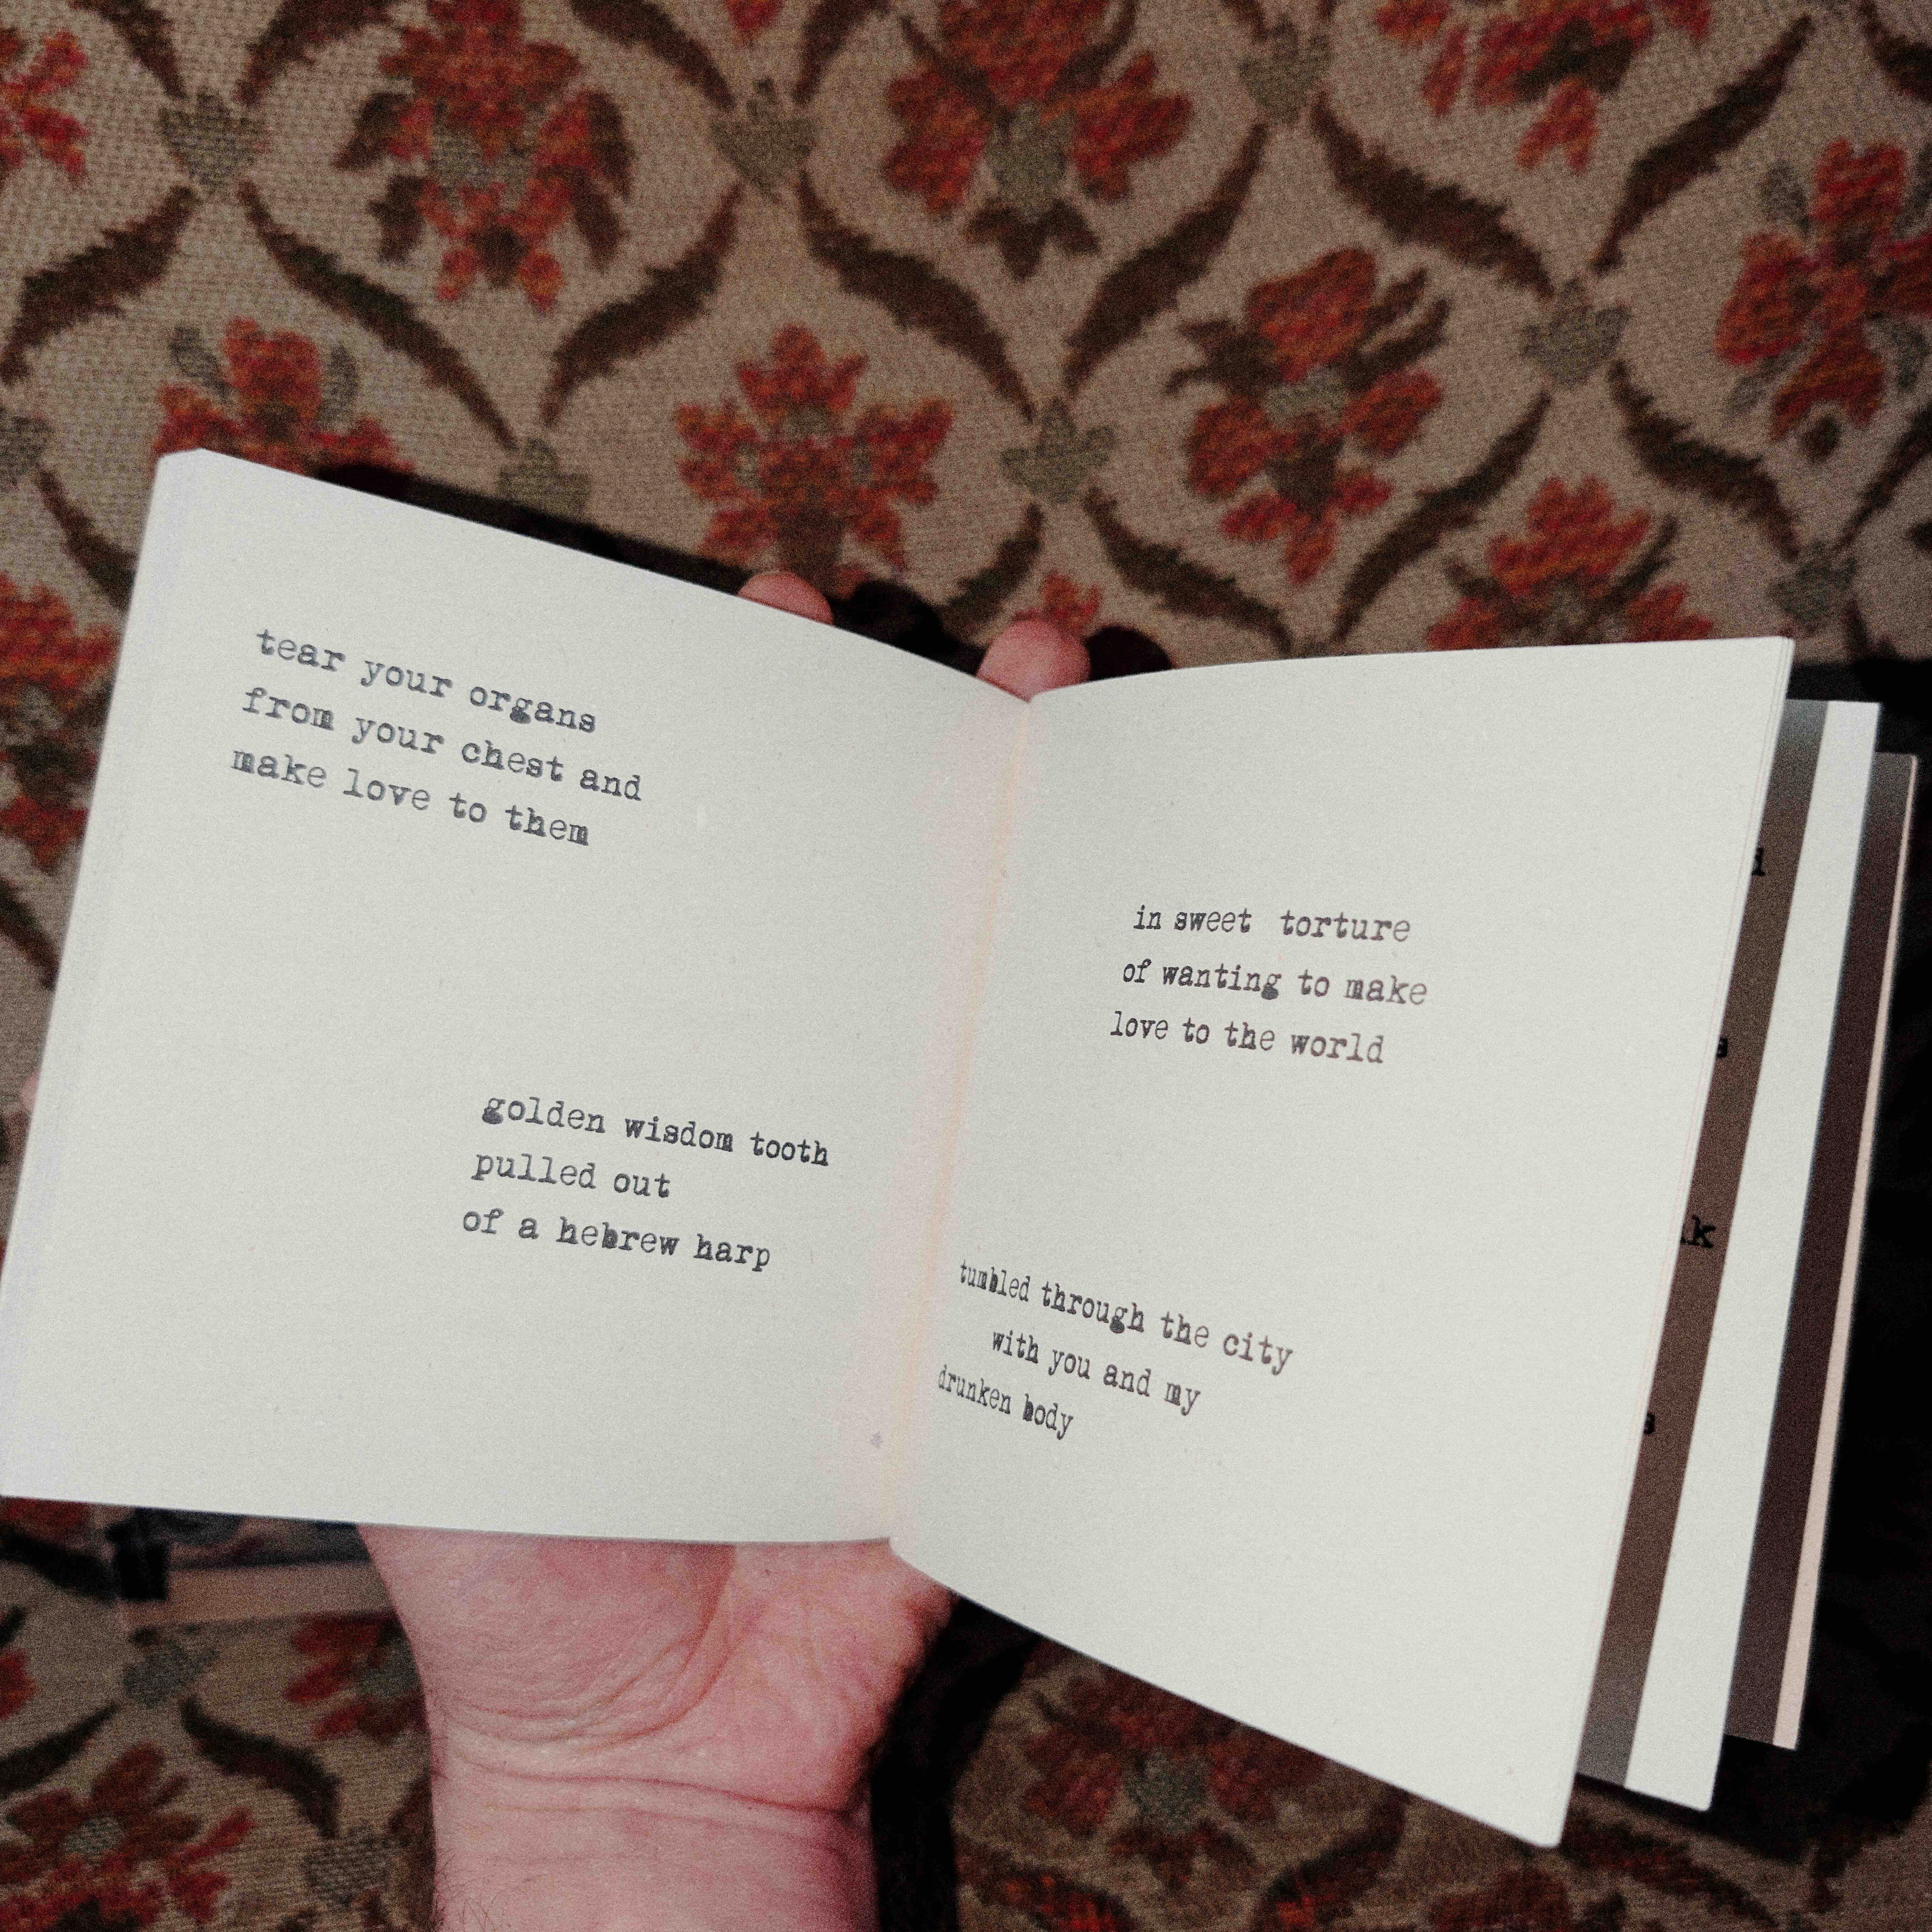 tear your organs
from your chest and
make love to them
golden wisdom tooth
pulled out
of a hebrew harp
in sweet torture
of wanting to make
love to the world
tumbled through the city
with you and my
drunken body